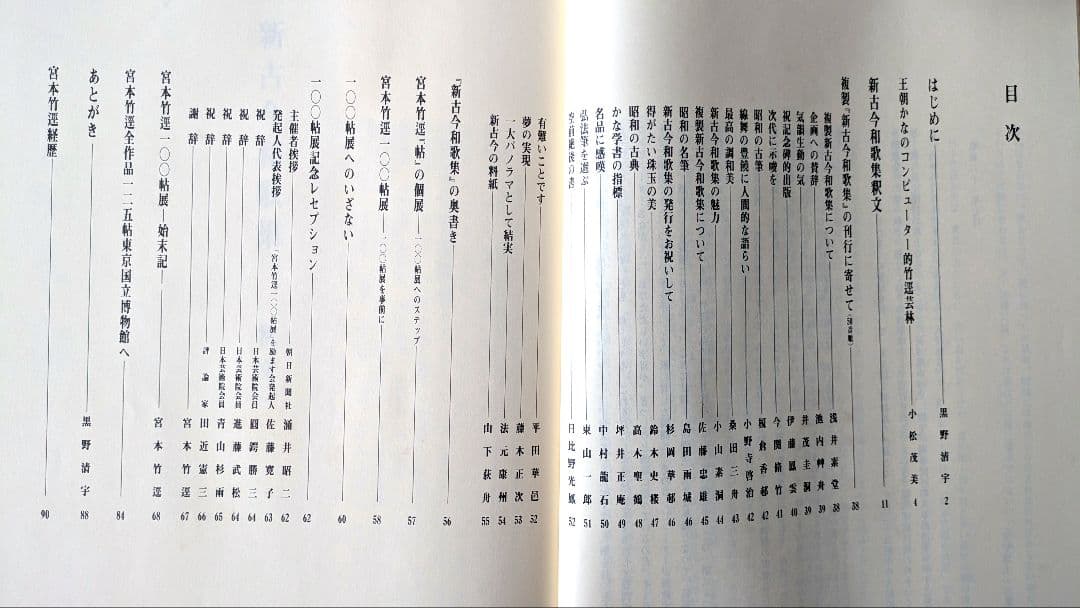 目次
はじめに 黒野清宇 2
王朝かなのコンピューター的竹逕芸林 小松茂美 4
新古今和歌集釈文 11
複製『新古今和歌集』の刊行に寄せて 38
複製新古今和歌集について 浅井素堂 38
企画への賛辞 池内艸舟 39
気韻生動の気 井茂圭洞 39
祝記念碑的出版 伊藤鳳雲 40
次代に示唆を 今関脩竹 41
昭和の古筆 榎倉香邨 42
線舞の豊饒に人間的な語らい 小野寺啓治 42
最高の調和美 桑田三舟 43
新古今和歌集の魅力 小山素洞 44
複製新古今和歌集について 佐藤忠雄 45
昭和の名筆 島田雨城 46
新古今和歌集の発行をお祝いして 杉岡華邨 46
得がたい珠玉の美 鈴木史楼 47
昭和の古典 高木聖鶴 48
かな学書の指標 坪井正庵 49
名品に感嘆 中村龍石 50
弘法筆を選ぶ 東山一郎 51
空前絶後の書 日比野光鳳 52
有難いことです 平田華邑 52
夢の実現 藤木正次 53
一大パノラマとして結実 法元康州 54
新古今の料紙 山下荻舟 55
『新古今和歌集』の奥書き 56
宮本竹逕三帖」の個展 一〇〇帖展へのステップ 57
宮本竹逕一〇〇帖展 一〇〇帖展を事前に 58
一〇〇帖展へのいざない 60
一〇〇帖展記念レセプション 62
主催者挨拶 朝日新聞社 涌井昭二 62
発起人代表挨拶 「宮本竹逕一〇〇帖展」を励ます会発起人 佐藤寛子 63
祝辞 日本芸術院会員 圓鍔勝三 64
祝辞 日本芸術院会員 進藤武松 64
祝辞 日本芸術院会員 青山杉雨 65
祝辞 評論家 田近憲三 66
謝辞 宮本竹逕 67
宮本竹逕一〇〇帖展―始末記 宮本竹逕 68
宮本竹逕全作品一二五帖東京国立博物館へ 84
あとがき 黒野清宇 88
宮本竹逕経歴 90